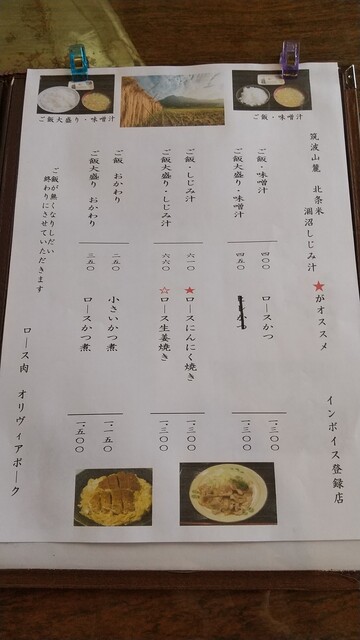 ご飯大盛り・味噌汁
ご飯・味噌汁
筑波山麓 北条米 涸沼しじみ汁 ★がオススメ
インボイス登録店
ご飯・味噌汁 四〇〇
ご飯大盛り・味噌汁 四五〇
ご飯・しじみ汁 六一〇
ご飯大盛り・しじみ汁 六六〇
ご飯 おかわり 二五〇
ご飯大盛り おかわり 三五〇
ご飯が無くなりしだい
終わりにさせていただきます
ロースかつ 一,三〇〇
一,三〇〇
★ロースにんにく焼き 一,三〇〇
☆ロース生姜焼き 一,三〇〇
小さいかつ煮 一,一五〇
ロースかつ煮 一,五〇〇
ロース肉 オリヴィアポーク